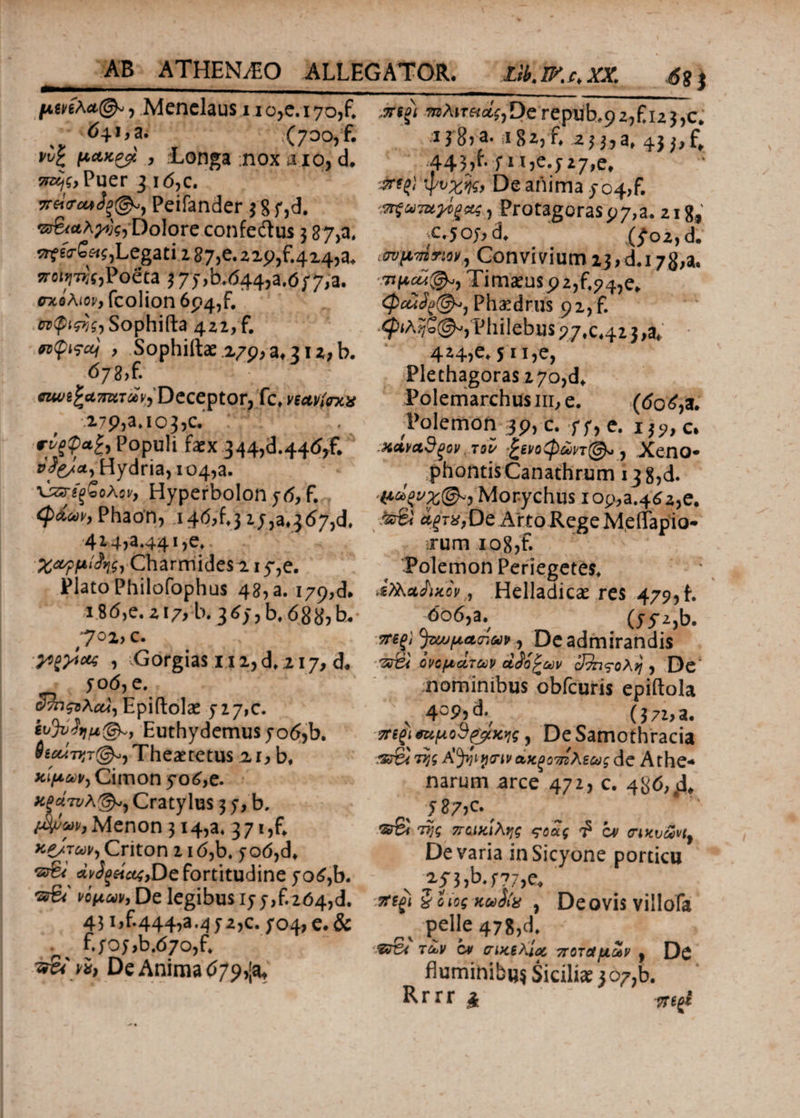 AB ATHENÆO ALLEGATOR. Lib. IV. c. XX. 683
μενέλα@, Menelaus 110,e.170,f.
641,a. (700,f.
νὺξ μακρὰ, Longa nox 110, d.
παῖς, Puer 316,c.
πείσανδρ@, Peisander 385,d.
περιαλγὴς, Dolore confectus 387,a.
πρέσβεις, Legati 287,e.229,f.424,a.
ποιητὴς, Poëta 375,b.644,a.657,a.
σκόλιον, scolion 694,f.
σοφιστὴς, Sophista 422, f.
σοφισταὶ, Sophistæ 279, a. 312, b.
678,f.
συνεξαπατῶν, Deceptor, sc. νεανίσκυ
279,a.103,c.
σύρφαξ, Populi fæx 344,d.446,f.
ὑδρία, Hydria, 104,a.
ὑπέρβολον, Hyperbolon 56, f.
φάων, Phaon, 146,f.325,a.367,d.
424,a.441,e.
χαρμίδης, Charmides 215,e.
Plato Philosophus 48, a. 179,d.
186,e. 217, b. 365, b. 688, b.
702, c.
γοργίας, Gorgias 112, d. 217, d.
506, e.
ἐπιστολαὶ, Epistolæ 527,c.
εὐθύδημ@, Euthydemus 506,b.
θεαίτητ@, Theætetus 21, b.
κίμων, Cimon 506,e.
κράτυλ@, Cratylus 35, b.
μένων, Menon 314,a. 371,f.
κρίτων, Criton 216,b. 506,d.
περὶ ἀνδρείας, De fortitudine 506,b.
περὶ νόμων, De legibus 155,f.264,d.
431,f.444,a.452,c. 504, e. &
f.505,b.670,f.
περὶ νῦ, De Anima 679,a.
περὶ πολιτείας, De repub. 92,f.123,c.
138, a. 182, f. 233, a. 433, f.
443,f. 511,e.527,e.
περὶ ψυχῆς, De anima 504,f.
πρωταγόρας, Protagoras 97,a. 218,
c.505, d. (502, d.
συμπόσιον, Convivium 23, d.178,a.
τιμαῖ@, Timæus 92,f.94,e.
φαῖδρ@, Phædrus 92, f.
φιλῆβ@, Philebus 97.c.423,a.
424,e. 511,e,
Plethagoras 270,d.
Polemarchus 111, e. (606,a.
Polemon 39, c. 55, e. 139, c.
κάναθρον τοῦ ξενοφῶντ@, Xenophontis
Canathrum 138,d.
μώρυχ@, Morychus 109,a.462,e.
περὶ ἄρτυ, De Arto Rege Messapiorum
108,f.
Polemon Periegetes.
ἑλλαδικὸν, Helladicæ res 479, f.
606,a. (552,b.
περὶ θαυμασίων, De admirandis
περὶ ὀνομάτων ἀδόξων ἐπιστολὴ, De
nominibus obscuris epistola
409, d. (372, a.
περὶ σαμοθρᾴκης, De Samothracia
περὶ τῆς Ἀθήνησιν ἀκροπόλεως de Athenarum
arce 472, c. 486, d.
587,c.
περὶ τῆς ποικίλης στοᾶς τ͂ ἐν σικυῶνι,
De varia in Sicyone porticu
253,b.577,e.
περὶ ȣ̃ δῖος κωδίυ, De ovis villosa
pelle 478,d.
περὶ τῶν ἐν σικελίᾳ ποταμῶν, De
fluminibus Siciliæ 307,b.
Rrrr 2 περὶ